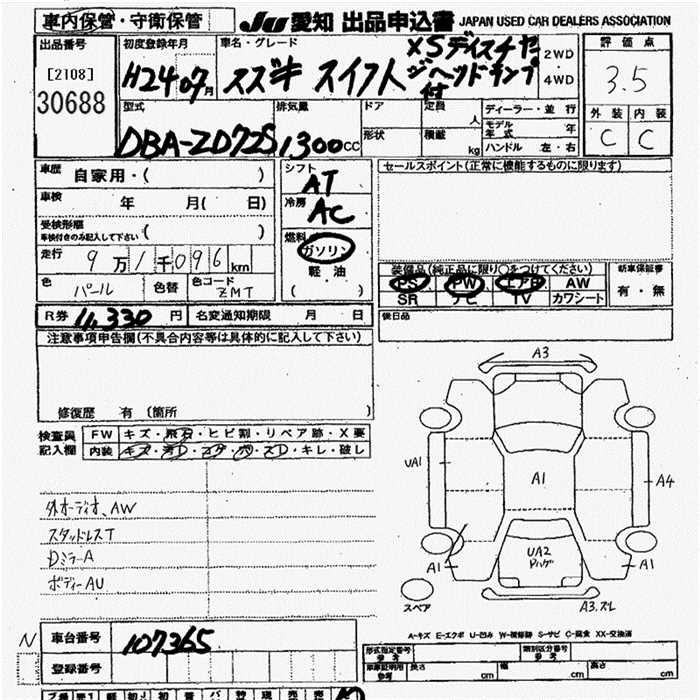 車内保管・守衛保管
JU 愛知 出品申込書 JAPAN USED CAR DEALERS ASSOCIATION
出品番号
[2108]
30688
初度登録年月
H24 07月
車名・グレード
スズキ スイフト
XSディスチャージヘッドランプ付
2WD
4WD
評価点
3.5
外装 内装
C C
型式
DBA-ZD72S
排気量
1300CC
ドア
形状
定員 人
積載 kg
ディーラー・並行
モデル年式 年
ハンドル 左・右
車歴 自家用・( )
車検 年 月( 日)
受検形態
車検付きのみ記入して下さい ( )
走行 9万1千096km
色 パール 色替 色コード ZMT
シフト
AT
冷房
AC
燃料
ガソリン
軽油
( )
セールスポイント(正常に機能するものに限ります)
装備品(純正品に限り○をつけてください)
PS PW エアB AW
SR ナビ TV カワシート
新車保証書
有・無
後日品
R券 11,330円
名変通知期限 月 日
注意事項申告欄(不具合内容等は具体的に記入して下さい)
修復歴 有 〔箇所 〕
検査員記入欄
FW キズ・飛石・ヒビ割・リペア跡・X要
内装 キズ・汚D・コゲ・穴・スレ・キレ・破し
外オーディオ、AW
スタッドレスT
Dミラー A
ボディー AU
A3
UA1
A1
A4
UA2
Pハゲ
A1
A1
スペア
A3.スレ
A-キズ E-エクボ U-凹み W-補修跡 S-サビ C-腐食 XX-交換済
N
車台番号 107365
登録番号
形式指定番号
参考
類別区分番号
参考
車庫証明用
参考
長さ cm
幅 cm
高さ cm